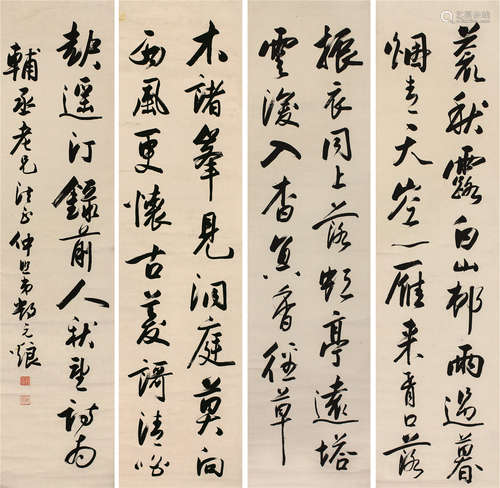 荒秋露白山邨雨過暮
烟青天空一雁来胥口落
振衣同上落亭遠塔
雲深入杳冥香徑草
木諸峯見洞庭莫向
西風更懷古菱謌清唱
起遥汀錄前人秋望詩為
輔丞老兄法正仲熙弟元